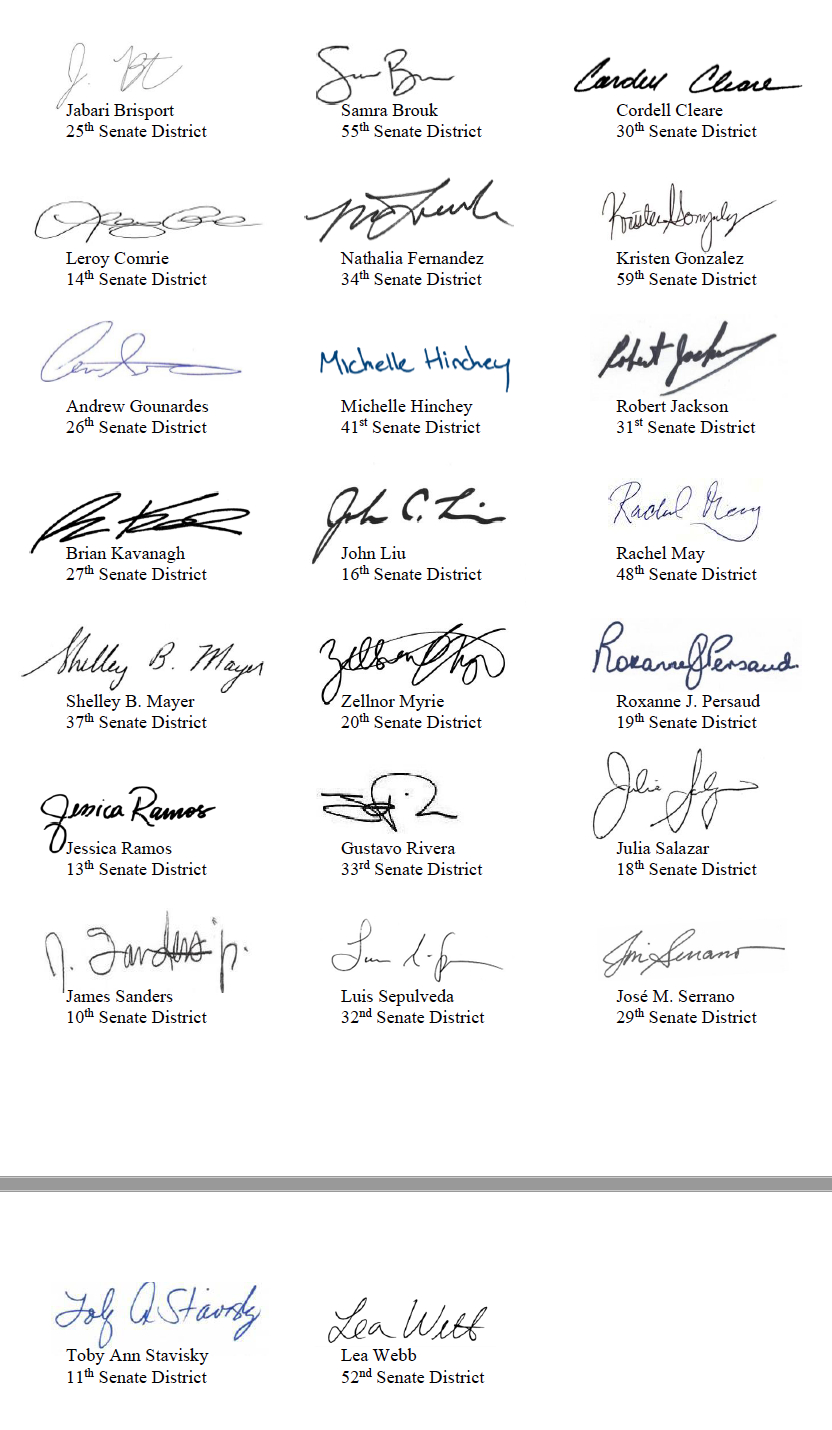 Jabari Brisport
25th Senate District
Samra Brouk
55th Senate District
Cordell Cleare
Cordell Cleare
30th Senate District
Leroy Comrie
14th Senate District
Nathalia Fernandez
34th Senate District
Kristen Gonzalez
Kristen Gonzalez
59th Senate District
Andrew Gounardes
26th Senate District
Michelle Hinchey
Michelle Hinchey
41st Senate District
Robert Jackson
Robert Jackson
31st Senate District
Brian Kavanagh
27th Senate District
John C. Liu
John Liu
16th Senate District
Rachel May
Rachel May
48th Senate District
Shelley B. Mayer
Shelley B. Mayer
37th Senate District
Zellnor Myrie
20th Senate District
Roxanne J Persaud
Roxanne J. Persaud
19th Senate District
Jessica Ramos
Jessica Ramos
13th Senate District
Gustavo Rivera
33rd Senate District
Julia Salazar
18th Senate District
J. Sanders jr.
James Sanders
10th Senate District
Luis Sepulveda
32nd Senate District
José M. Serrano
29th Senate District
Toby A Stavisky
Toby Ann Stavisky
11th Senate District
Lea Webb
Lea Webb
52nd Senate District